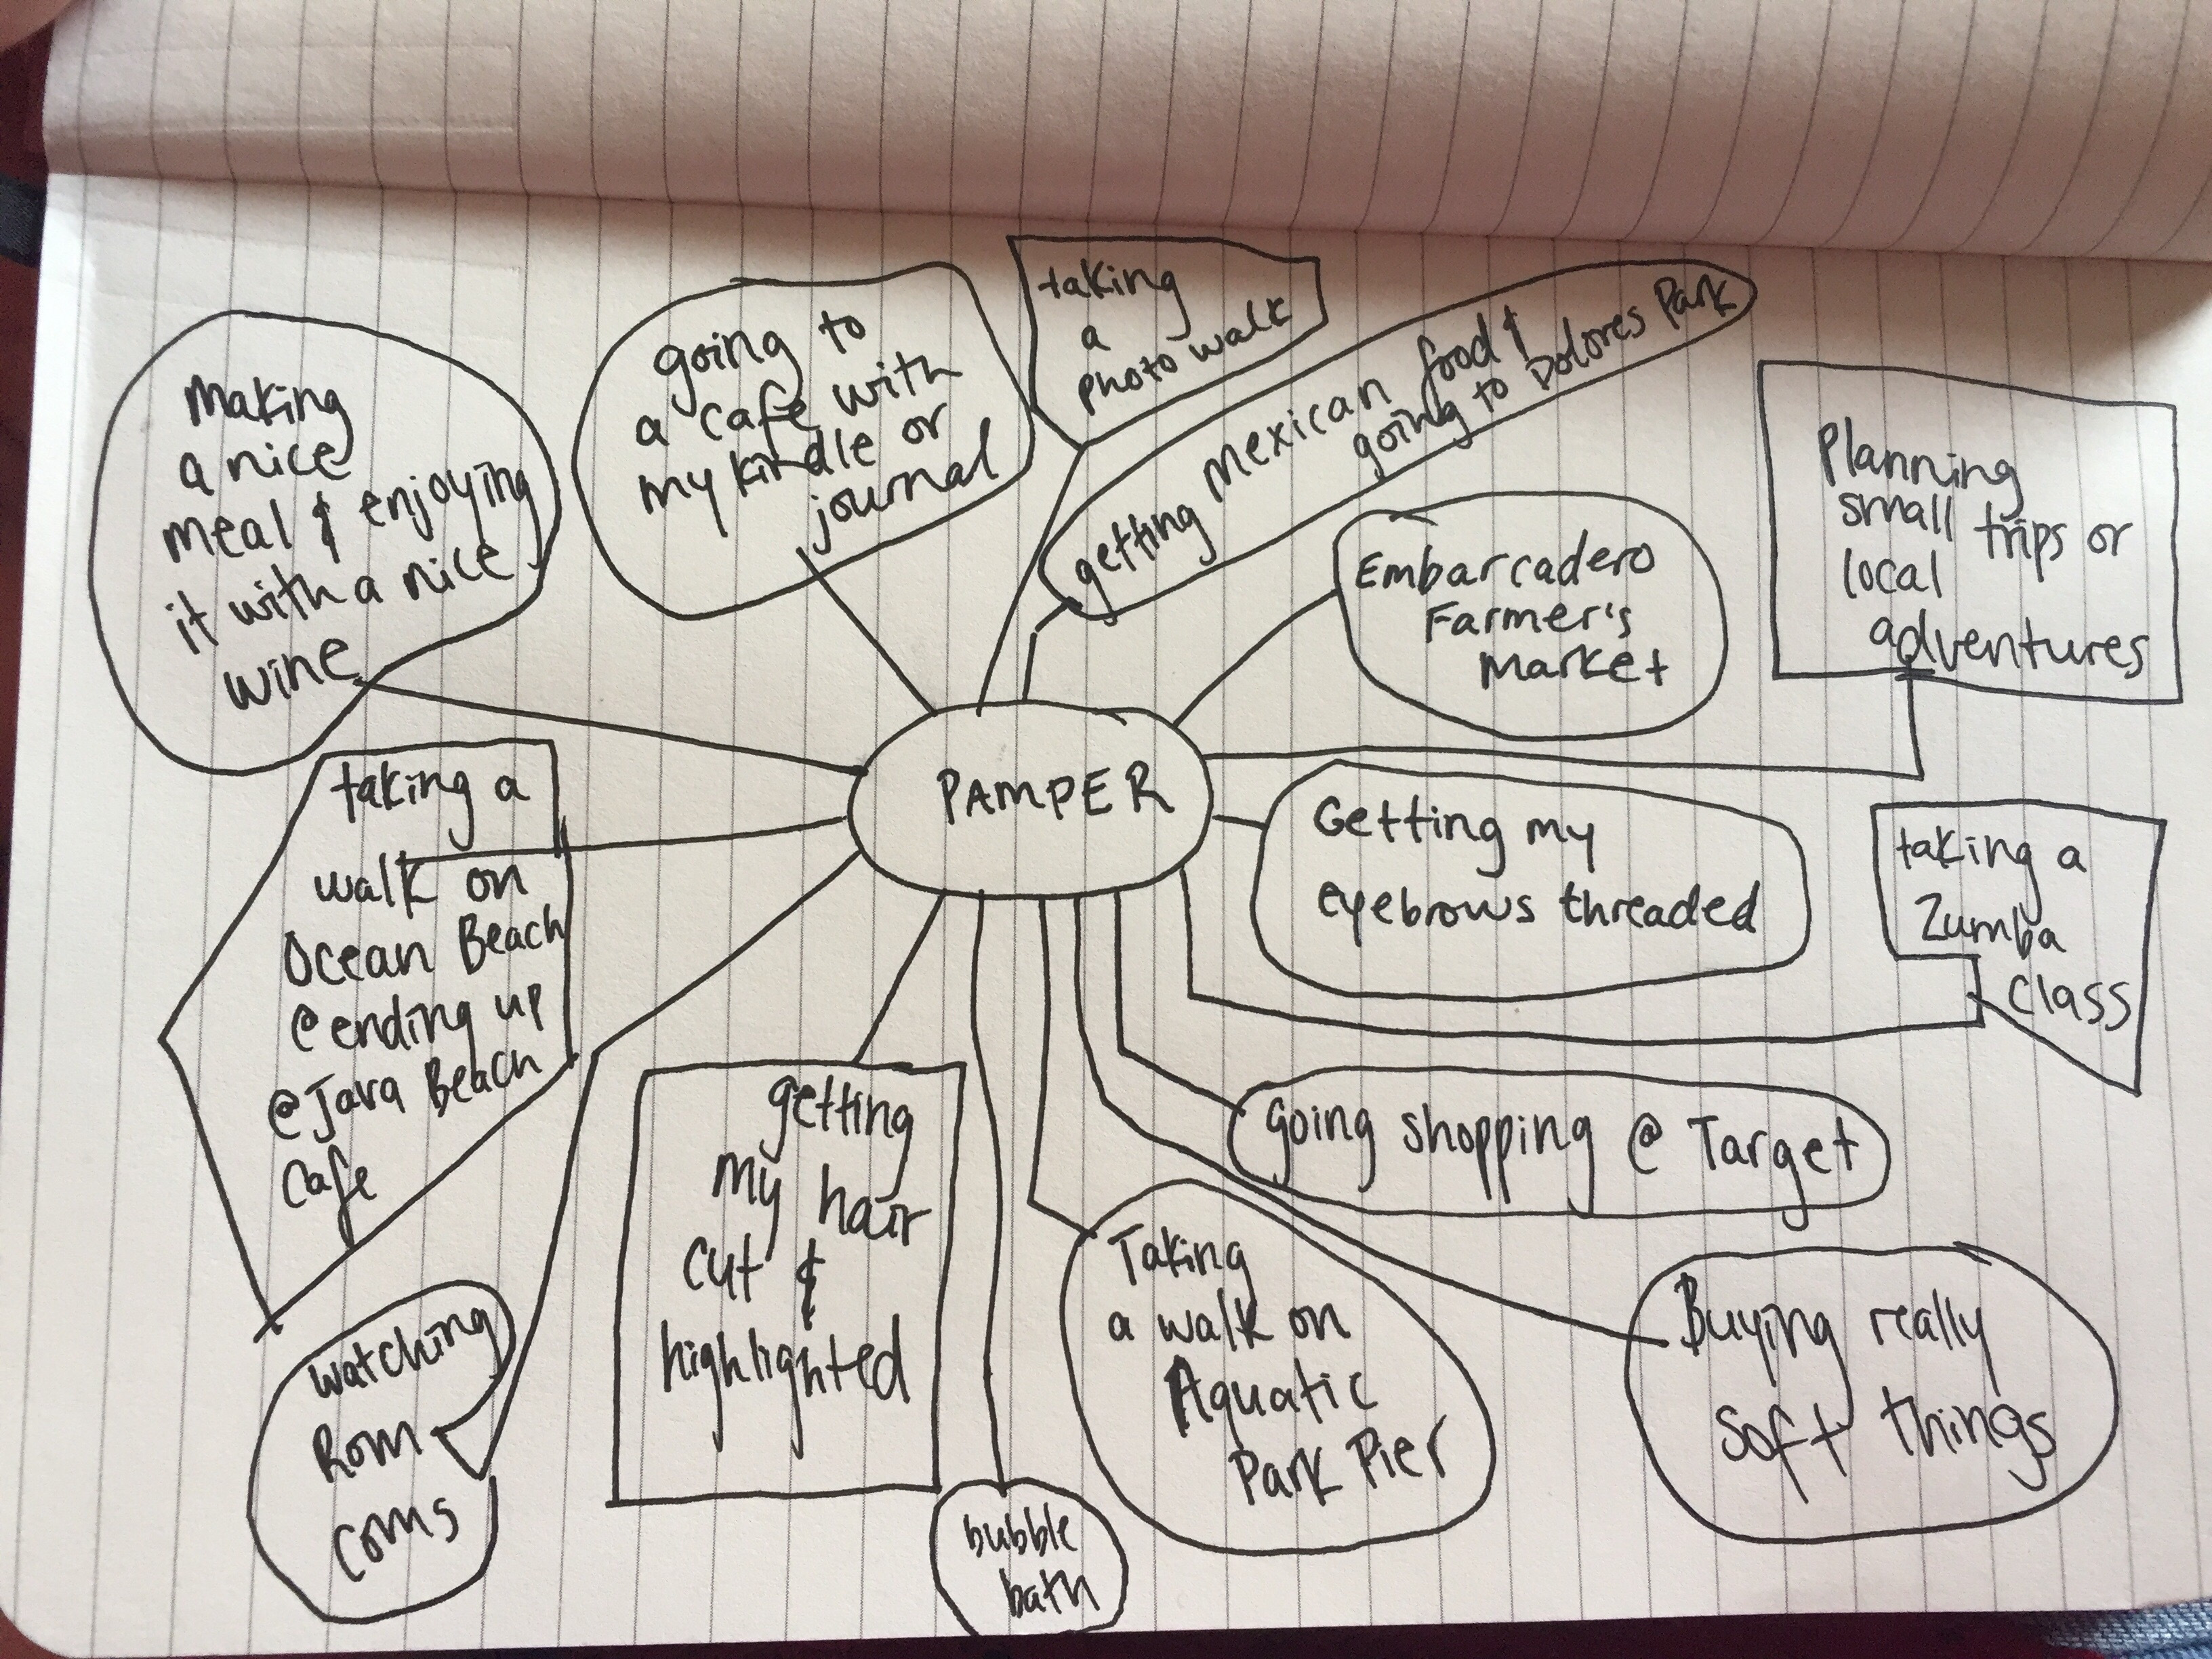 making
a nice
meal & enjoying
it with a nice
wine
going to
a cafe with
my kindle or
journal
taking
a
photo walk
getting mexican food &
going to Dolores Park
Embarcadero
Farmer's
Market
Planning
small trips or
local
adventures
PAMPER
taking a
walk on
Ocean Beach
@ ending up
@ Java Beach
Cafe
Getting my
eyebrows threaded
taking a
Zumba
Class
going shopping @ Target
getting
my hair
cut &
highlighted
Taking
a walk on
Aquatic
Park Pier
Buying really
soft things
watching
Rom
coms
bubble
bath